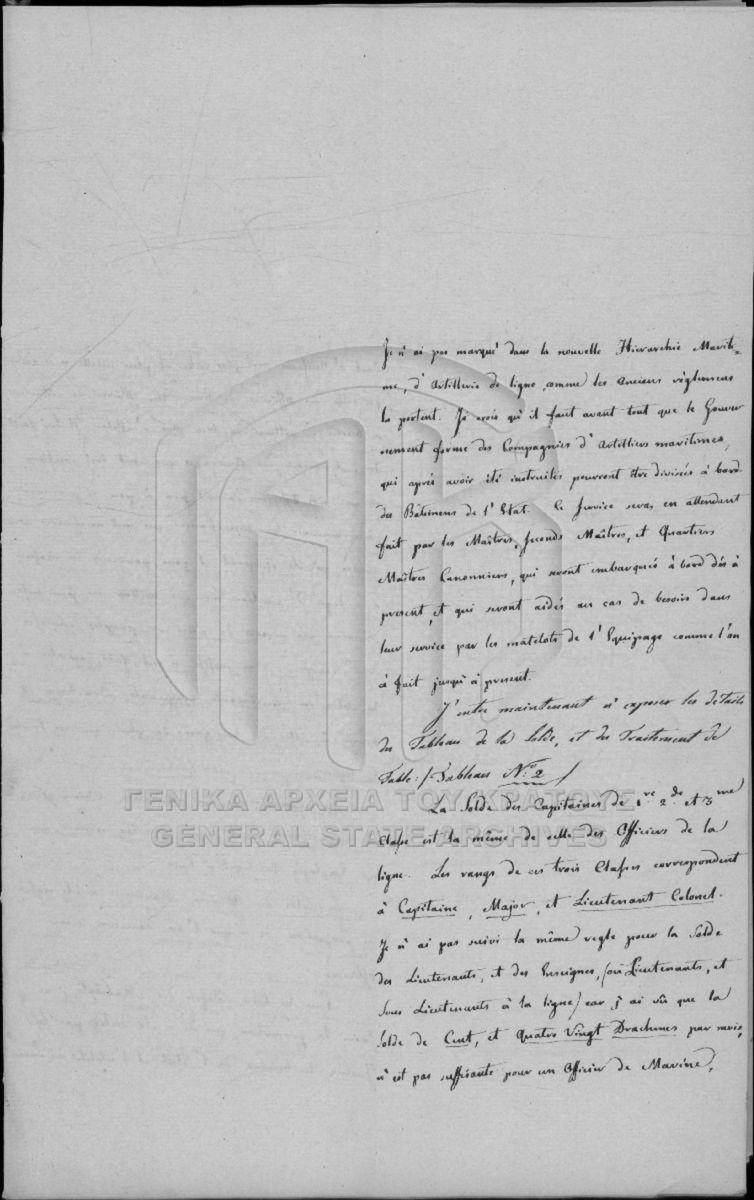 Je n'ai pas marqué dans la nouvelle Hierarchie Mariti-
me, d'Artillerie de ligne, comme les anciens règlemens
la portent. Je crois qu'il faut avant tout que le Gouver
nement forme des Compagnies d'Artilliers maritimes,
qui après avoir été instruites peuvront être divisées à bord
des Bâtimens de l'Etat. Le Service seras en attendant
fait par les Maîtres, Seconds Maîtres, et Quartiers
Maîtres Canonniers, qui seront embarqués à bord dés à
present, et qui seront aidés au cas de besoin dans
leur service par les matelots de l'Equipage comme l'on
à fait jusqu'à present.
J'entre maintenant à exposer les détails
du Tableau de la Solde, et du Traitement de
Table: /Tableau N.º 2/
ΓΕΝΙΚΑ ΑΡΧΕΙΑ ΤΟΥ ΚΡΑΤΟΥΣ
GENERAL STATE ARCHIVES
La Solde des Capitaines de 1.re 2.de et 3me
Classe est la même de celle des Officiers de la
ligne. Les rangs de ces trois Classes correspondent
à Capitaine, Major, et Lieutenant Colonel.
Je n'ai pas suivi la même regle pour la Solde
des Lieutenants, et des Enseignes, /ou Lieutenants, et
Sous Lieutenants à la ligne/ car j'ai vû que la
Solde de Cent, et Quatre Vingt Drachmes par mois,
n'est pas suffisante pour un Officier de Marine,